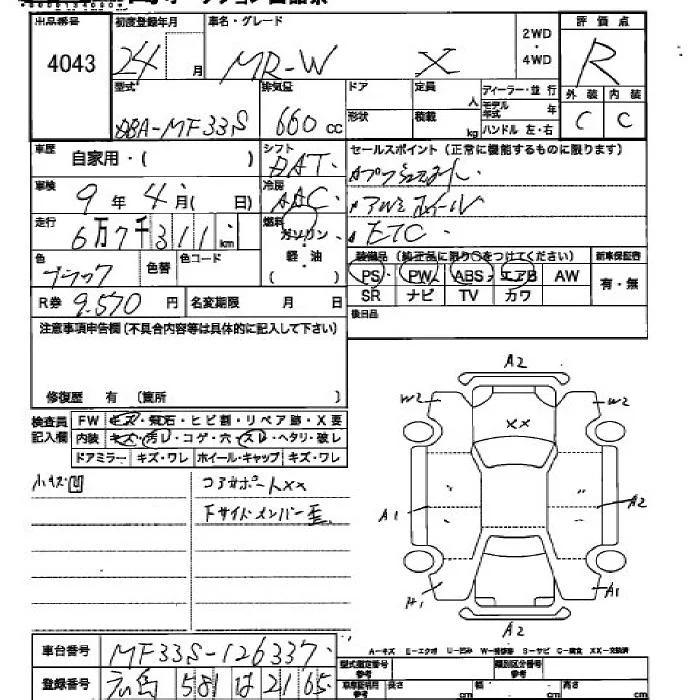 出品番号 初度登録年月 車名・グレード 2WD・4WD 評価点
4043 24 月 MR-W X R
型式 排気量 ドア 定員 人 ディーラー・並行 外装 内装
DBA-MF33S 660 cc 形状 積載 kg モデル年式 年 ハンドル 左・右 C C
車歴 自家用・( ) シフト DAT セールスポイント(正常に機能するものに限ります)
車検 9年 4月( 日) 冷房 AAC
アルミホイール
走行 6万7千311km 燃料 ガソリン・軽・油 ( ) ETC
色 ブラック 色替 色コード 装備品(純正品に限り○をつけてください) 新車保証書
PS PW ABS エアB AW 有・無
R券 9.570 円 名変期限 月 日 SR ナビ TV カワ
後日品
注意事項申告欄(不具合内容等は具体的に記入して下さい)
修復歴 有 〔箇所 〕
検査員記入欄 FW キズ・飛石・ヒビ割・リペア跡・X要
内装 キズ・汚レ・コゲ・穴・スレ・ヘタリ・破レ
ドアミラー キズ・ワレ ホイール・キャップ キズ・ワレ
小キズ凹 コアサポートXX
FサイドメンバーE歪
A2
W2 XX W2
A1 A2
A1 A1
A2
A-キズ E-エクボ U-凹み W-補修跡 S-サビ C-腐食 XX-交換済
車台番号 MF33S-126337
型式指定番号 参考 類別区分番号 参考
登録番号 広島 581 は 2165
車庫証明用 参考 長さ cm 幅 cm 高さ cm